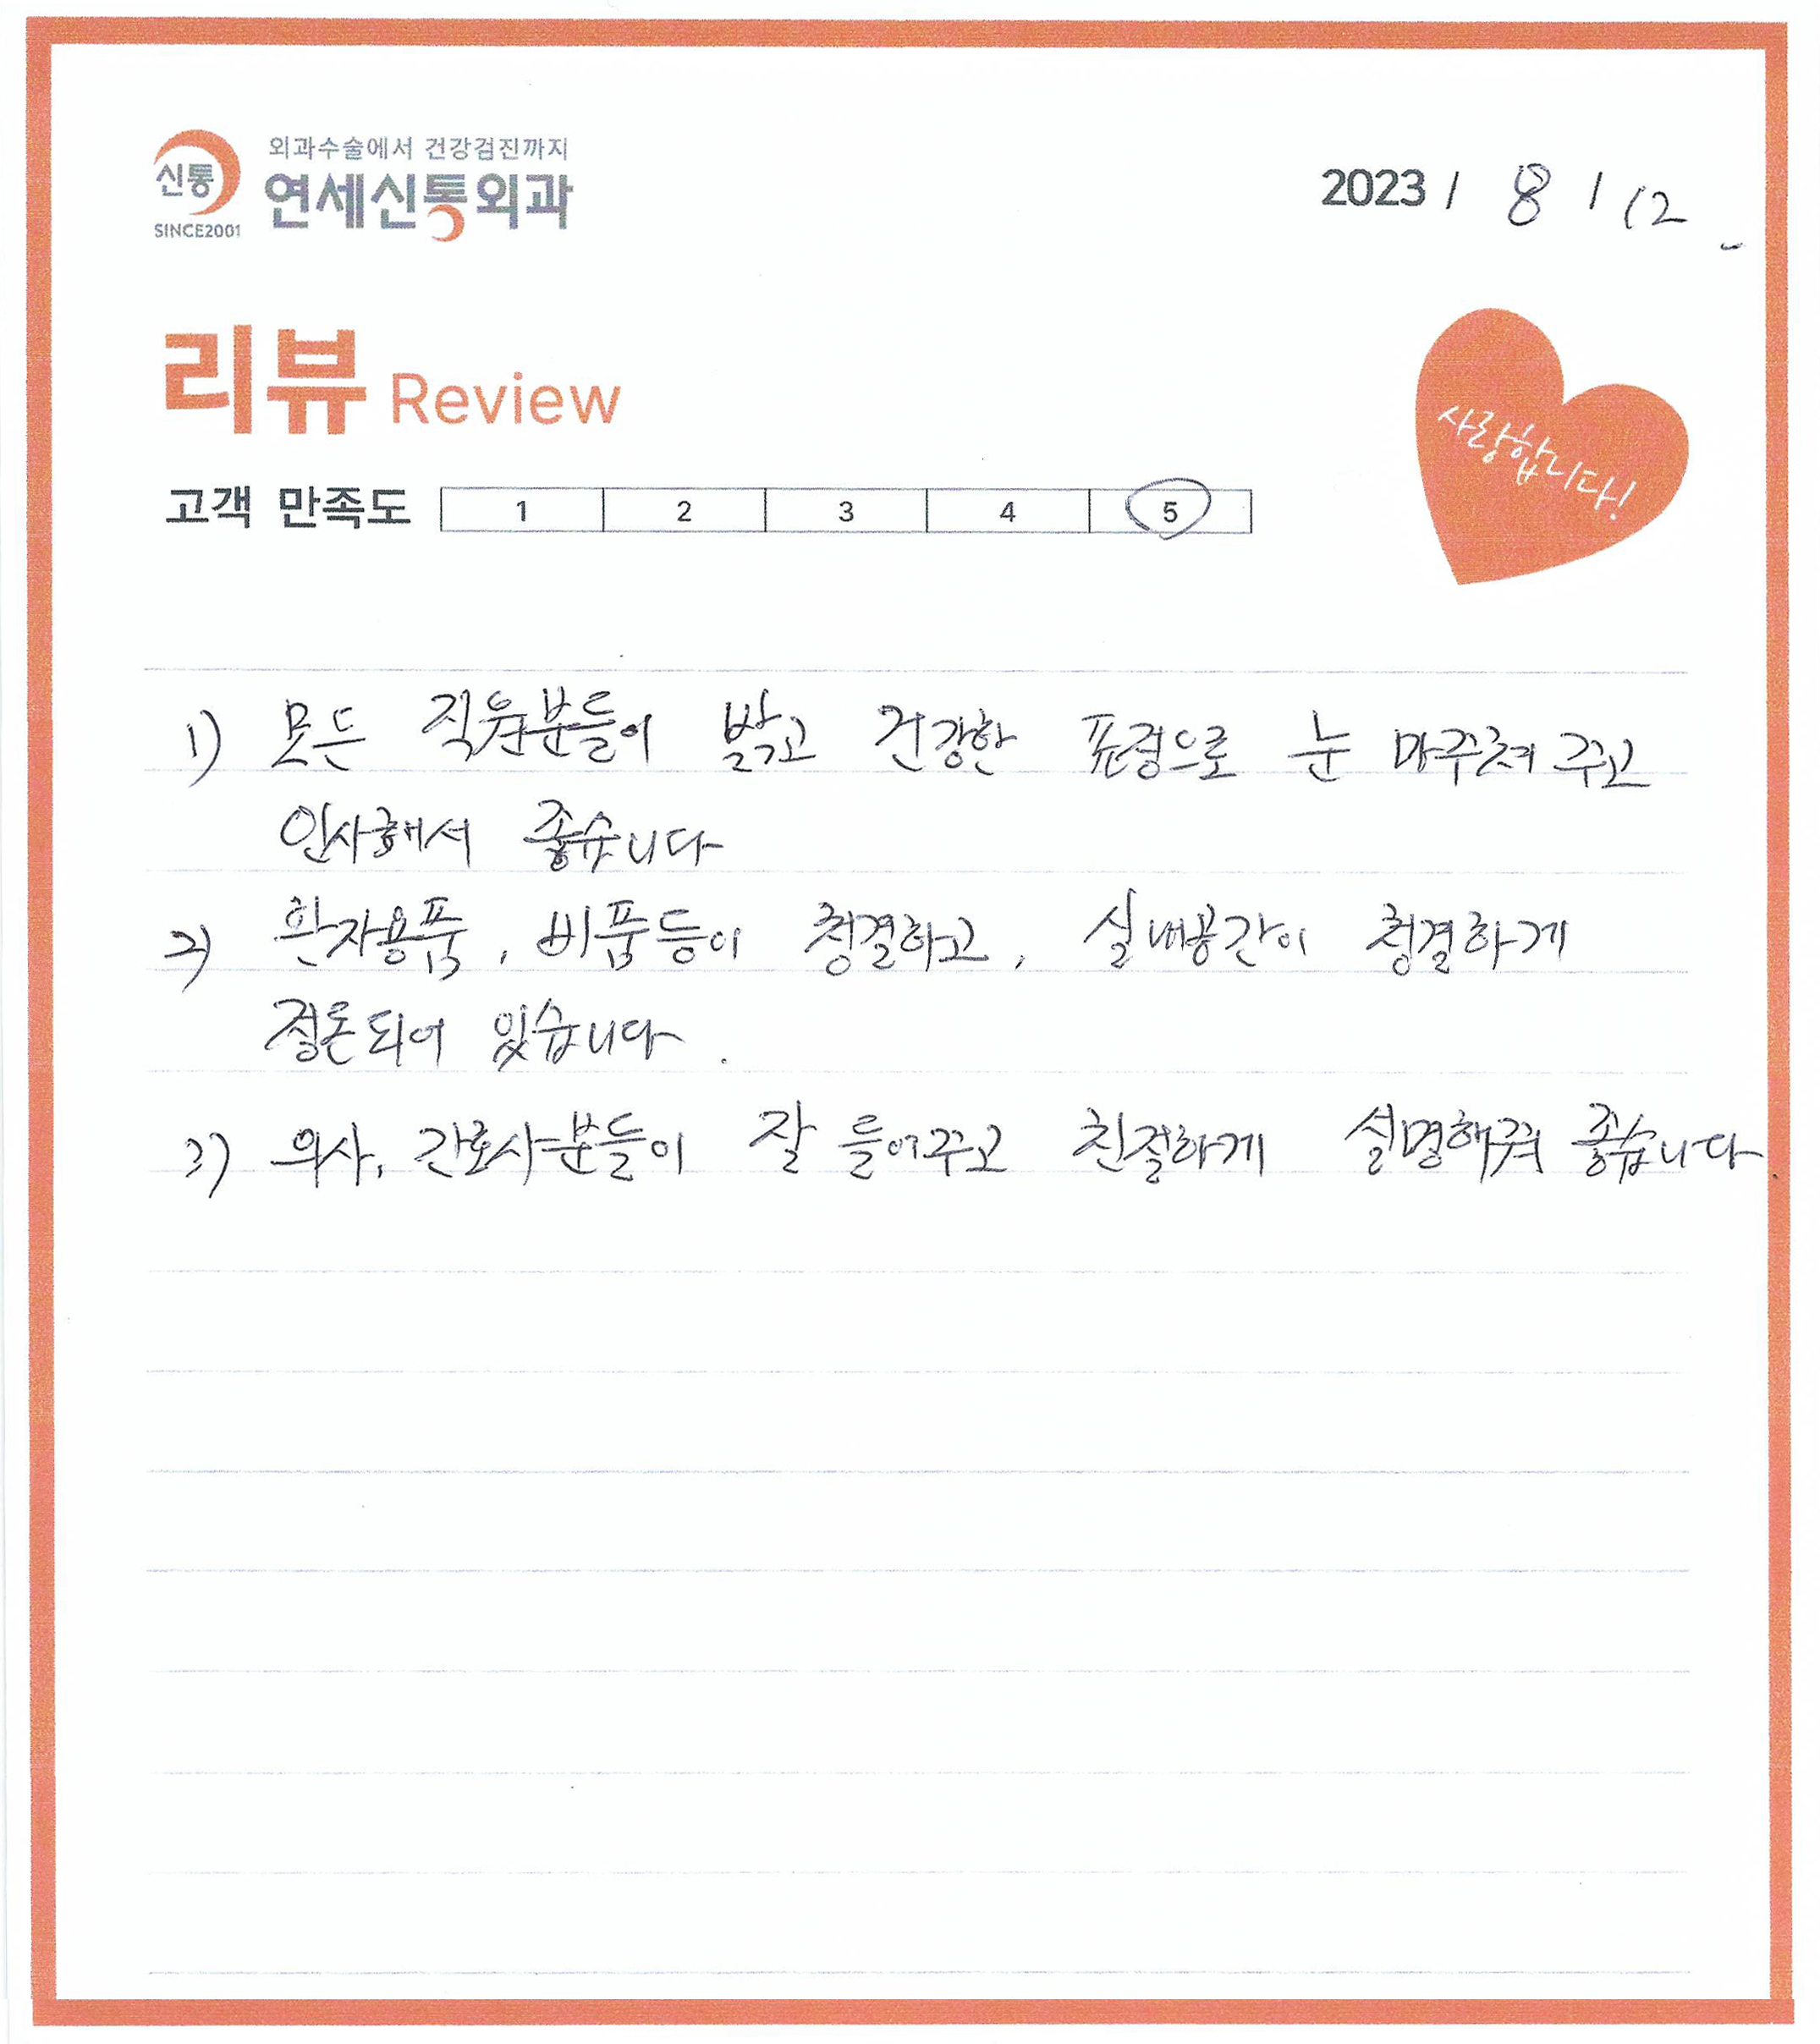 신통
SINCE2001
외과수술에서 건강검진까지
연세신통외과
2023 / 8 / 12
리뷰 Review
사랑합니다!
고객 만족도 1 2 3 4 5
1) 모든 직원분들이 밝고 건강한 표정으로 눈 마주쳐 주고
인사해서 좋습니다
2) 환자용품, 비품등이 청결하고, 실내공간이 청결하게
정돈되어 있습니다.
3) 의사, 간호사분들이 잘 들어주고 친절하게 설명해줘 좋습니다.